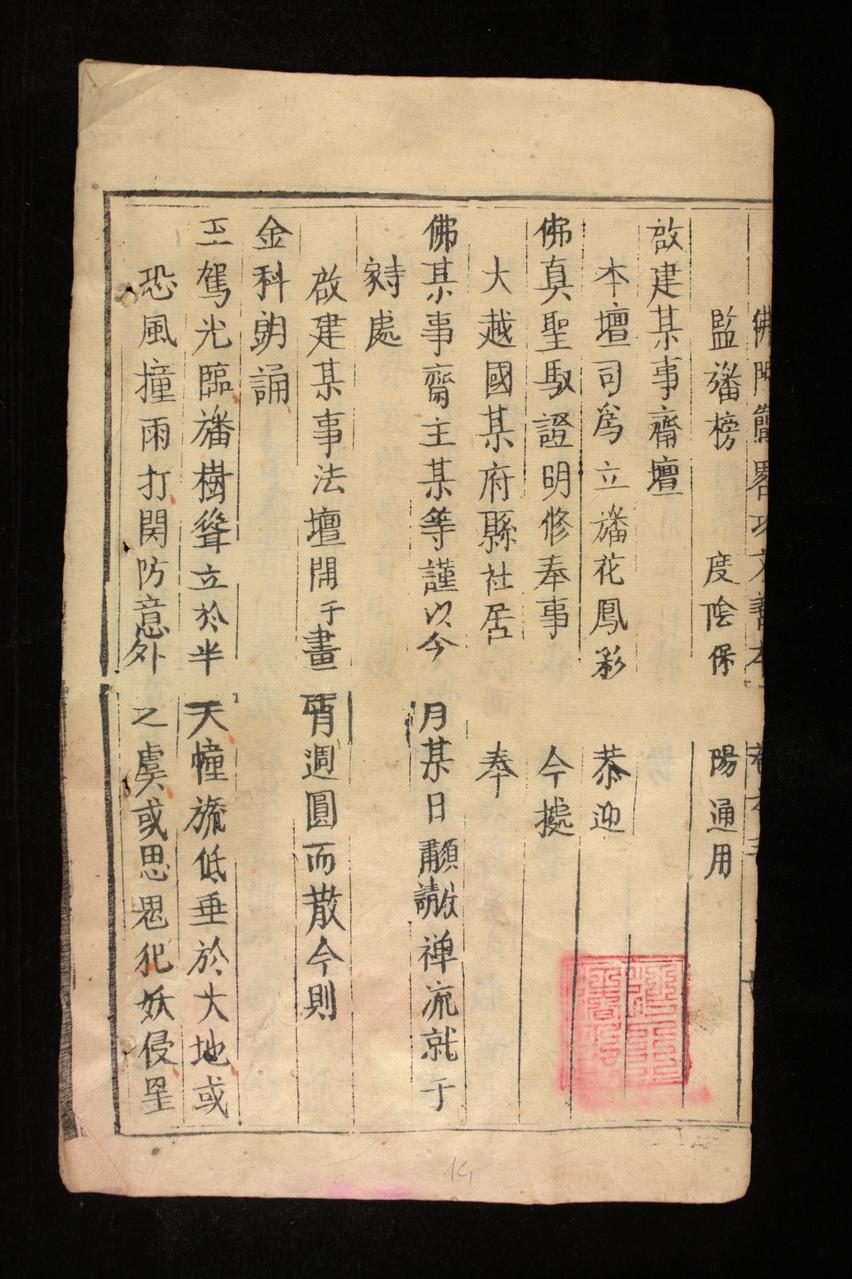 佛門簡畧功文善本 卷之三
監旛榜 度陰保 陽通用
啟建某事齋壇
本壇司爲立旛花鳳彩 恭迎
佛真聖馭證明修奉事 今據
大越國某府縣社居 奉
佛某事齋主某等謹以今 月某日顓 禅流就于
處
啟建某事法壇開于晝 宵週圓而散今則
金科朗誦
玉駕光臨旛樹聳立於半 天幢旒低垂於大地或
恐風撞雨打関防意外 之虞或思鬼犯妖侵星
14